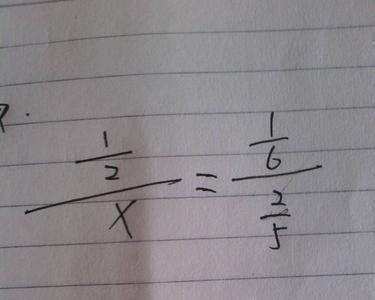 (1/2)/x = (1/6)/(2/5)